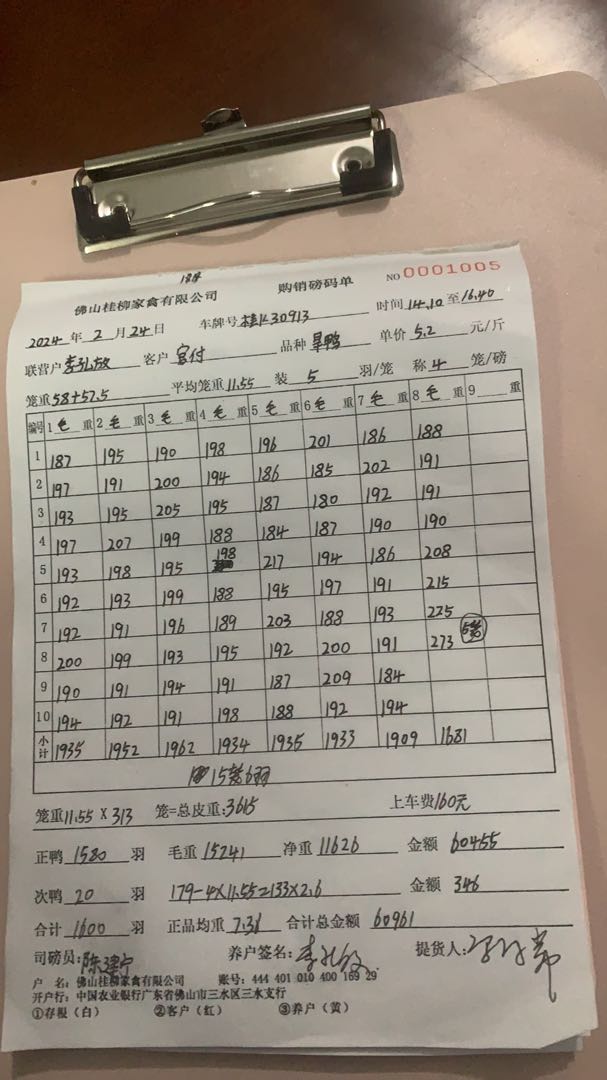 佛山桂柳家禽有限公司 购销磅码单 NO 0001005
2024年2月24日 车牌号桂K30913 时间14.10至16.40
联营户李礼放 客户官付 品种旱鸭 单价5.2元/斤
笼重58+57.5 平均笼重11.55 装5羽/笼 称4笼/磅
编号 1毛重 2毛重 3毛重 4毛重 5毛重 6毛重 7毛重 8毛重 9重
1 187 195 190 198 196 201 186 188
2 197 191 200 194 186 185 202 191
3 193 195 205 195 187 180 192 191
4 197 207 199 188 184 187 190 190
5 193 198 195 198 217 194 186 208
6 192 193 199 188 195 197 191 215
7 192 191 196 189 203 188 193 225
8 200 199 193 195 192 200 191 273 5笼
9 190 191 194 191 187 209 184
10 194 192 191 198 188 192 194
小计 1935 1952 1962 1934 1935 1933 1909 1681
15笼6羽
笼重11.55×313 笼=总皮重:3615 上车费160元
正鸭1580羽 毛重15241 净重11626 金额60455
次鸭20羽 179-4×11.55=133×2.6 金额346
合计1600羽 正品均重7.36 合计总金额60961
司磅员:陈建宁 养户签名: 提货人:
户 名:佛山桂柳家禽有限公司 账号:444 401 010 400 169 29
开户行:中国农业银行广东省佛山市三水区三水支行
①存根(白) ②客户(红) ③养户(黄)